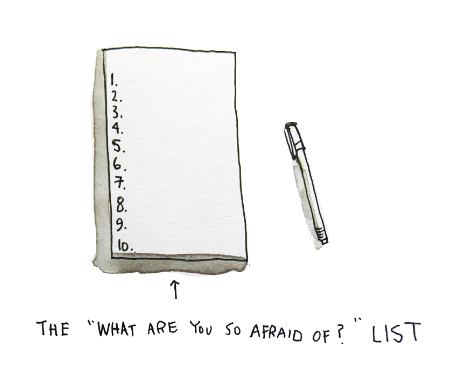 1.
2.
3.
4.
5.
6.
7.
8.
9.
10.
THE "WHAT ARE YOU SO AFRAID OF?" LIST